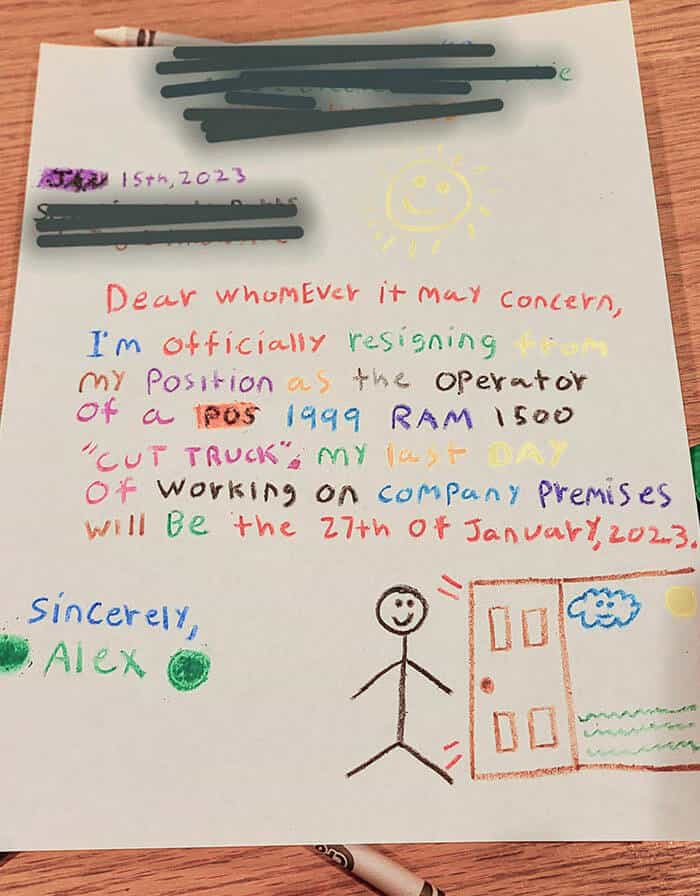 15th, 2023
Dear whomEver it may concern,
I'm officially resigning from
my Position as the operator
of a POS 1999 RAM 1500
"CUT TRUCK", my last DAY
Of working on company Premises
will Be the 27th of January, 2023.
Sincerely,
Alex